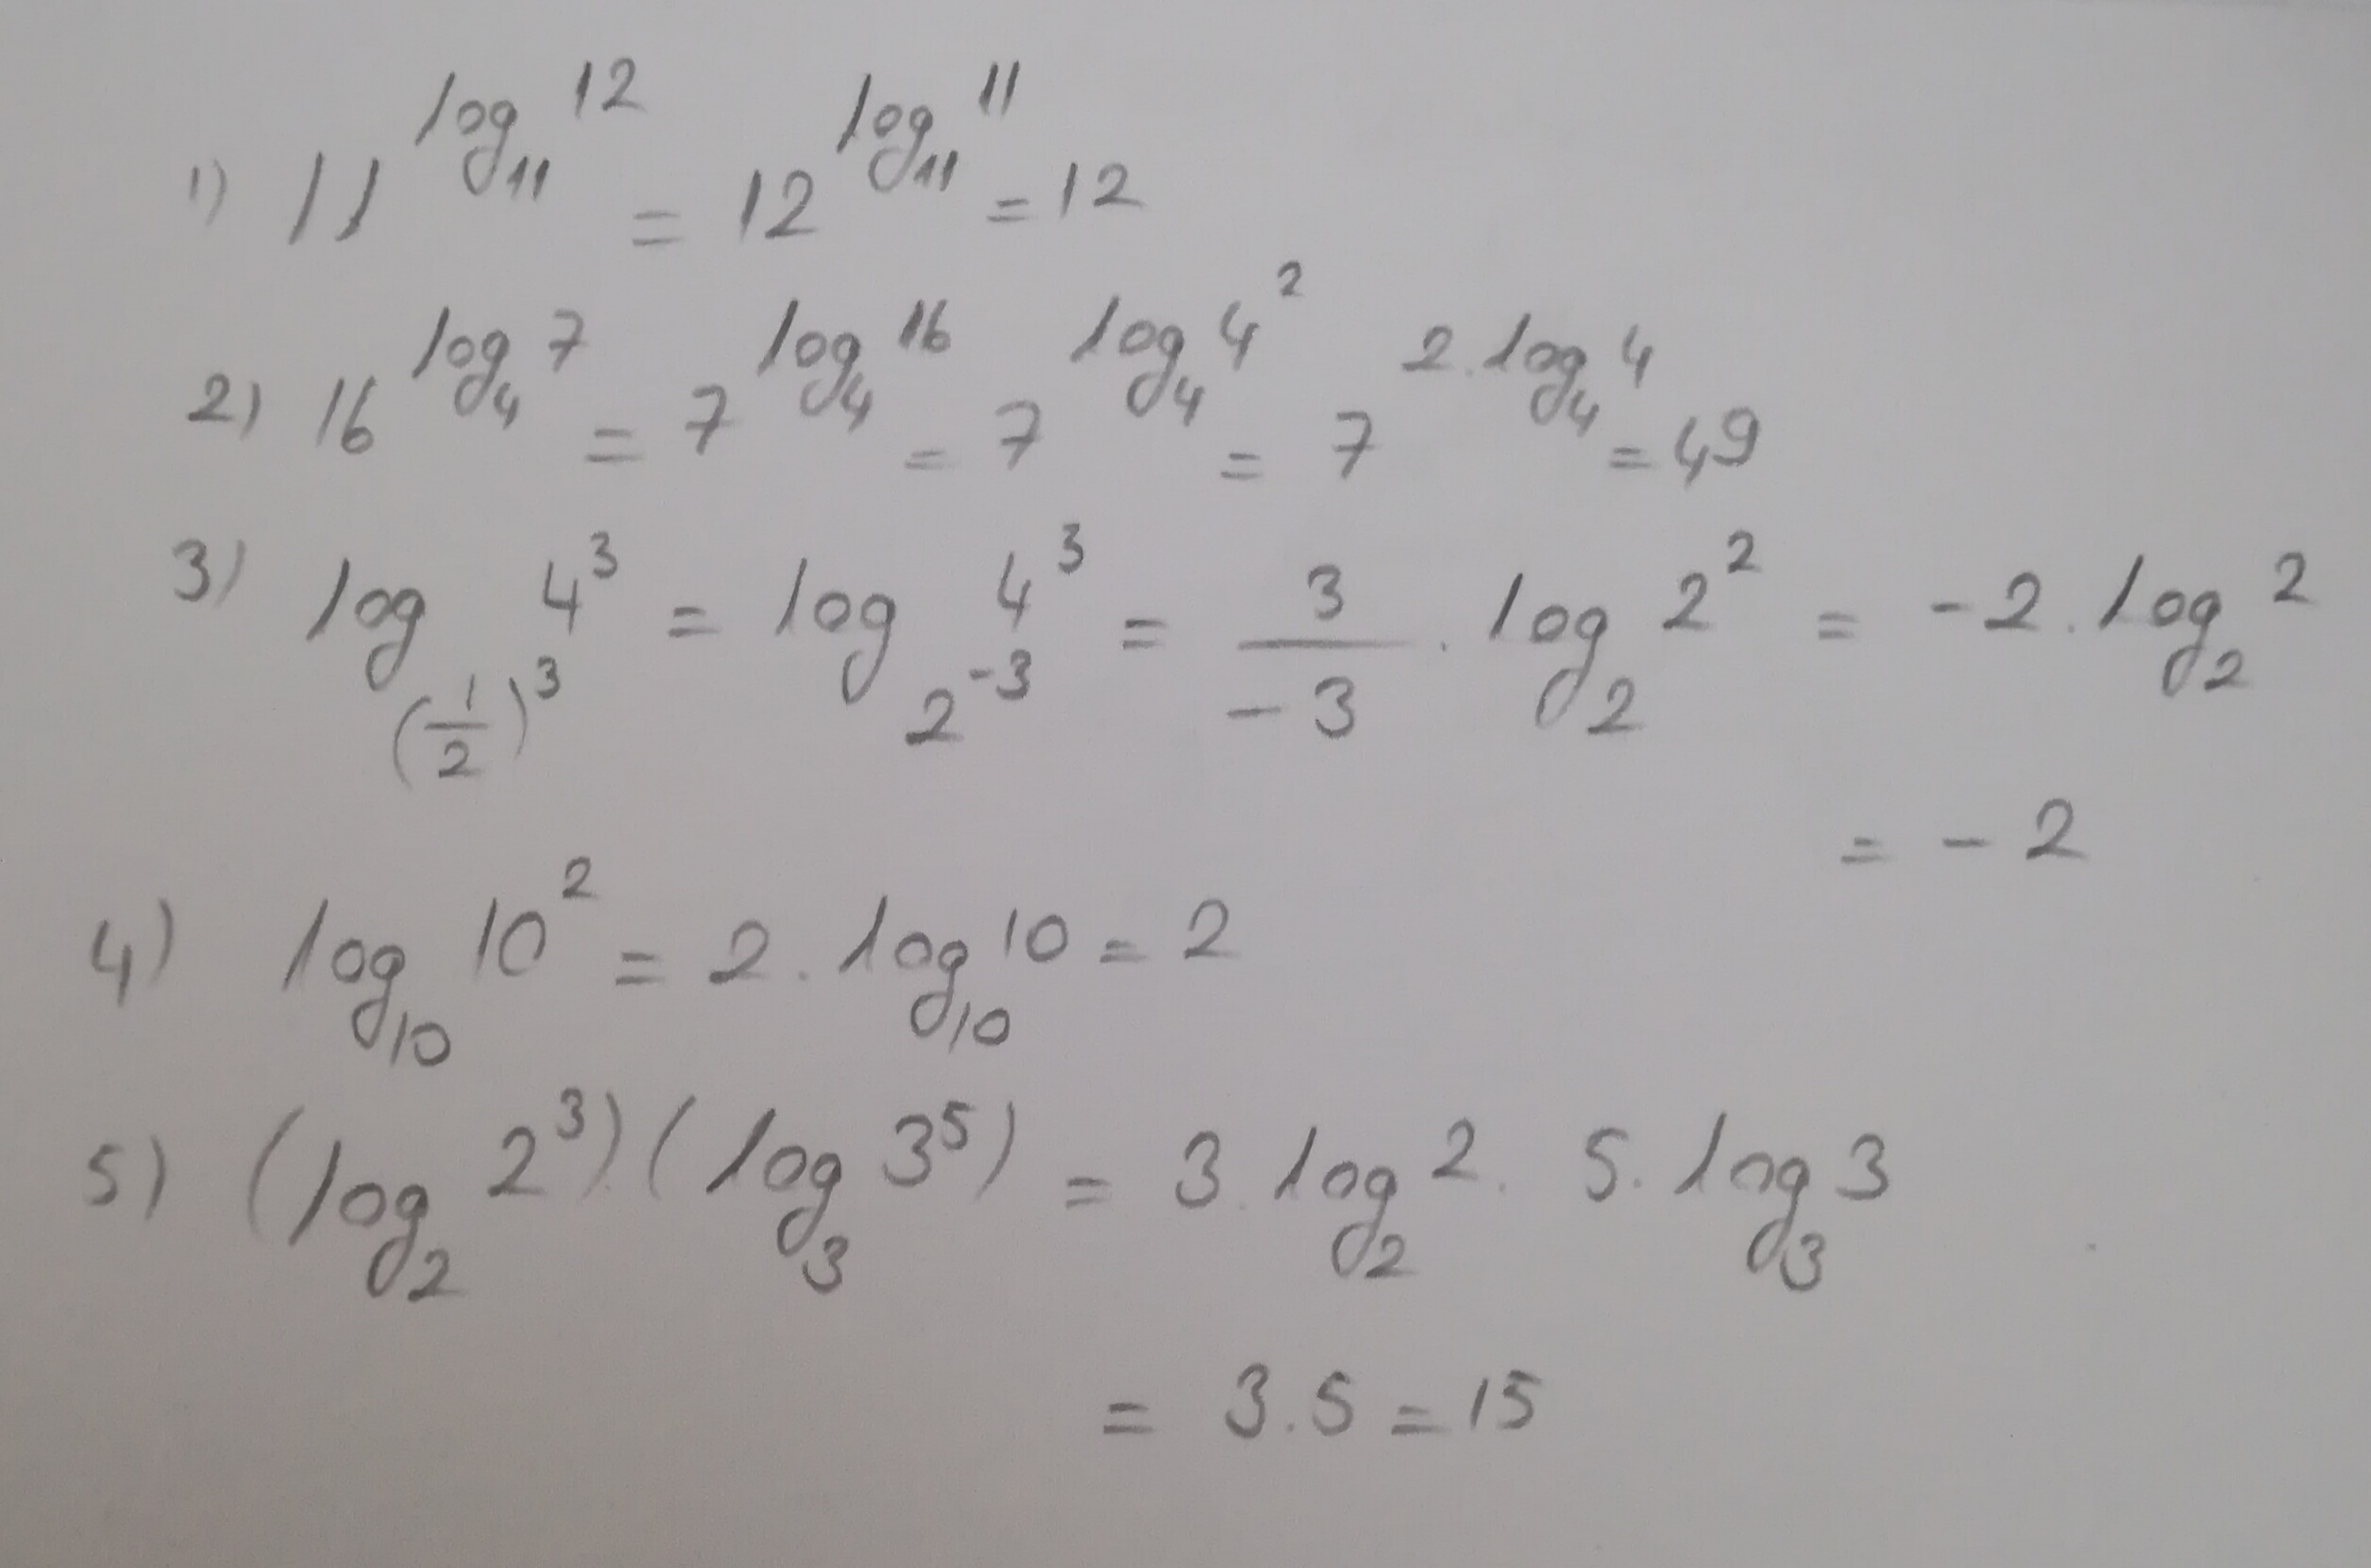 1) 11^{log_{11} 12} = 12^{log_{11} 11} = 12
2) 16^{log_4 7} = 7^{log_4 16} = 7^{log_4 4^2} = 7^{2.log_4 4} = 49
3) log_{(1/2)^3} 4^3 = log_{2^{-3}} 4^3 = \frac{3}{-3} . log_2 2^2 = -2 . log_2 2
= -2
4) log_{10} 10^2 = 2 . log_{10} 10 = 2
5) (log_2 2^3).(log_3 3^5) = 3 . log_2 2 . 5 . log_3 3
= 3.5 = 15